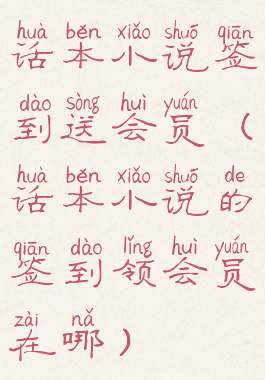 huà běn xiǎo shuō qiān
话本小说签
dào sòng huì yuán
到送会员（
huà běn xiǎo shuō de
话本小说的
qiān dào lǐng huì yuán
签到领会员
zài nǎ
在哪）